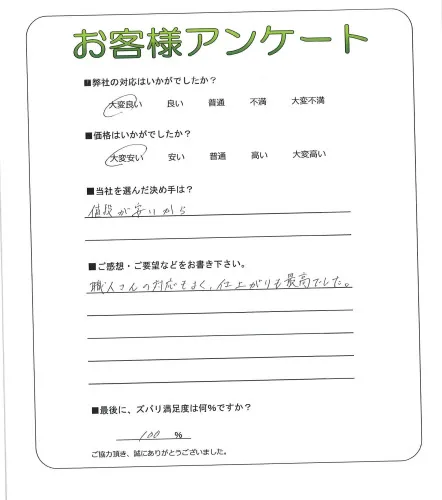 お客様アンケート
■弊社の対応はいかがでしたか?
大変良い 良い 普通 不満 大変不満
■価格はいかがでしたか?
大変安い 安い 普通 高い 大変高い
■当社を選んだ決め手は?
値段が安いから
■ご感想・ご要望などをお書き下さい。
職人さんの対応もよく、仕上がりも最高でした。
■最後に、ズバリ満足度は何%ですか?
100 %
ご協力頂き、誠にありがとうございました。